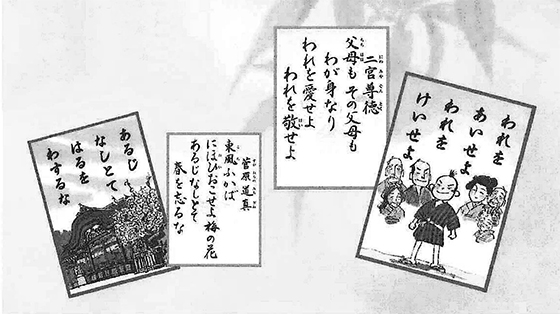 われを
あいせよ
われを
けいせよ
二宮尊徳
父母も その父母も
わが身なり
われを愛せよ
われを敬せよ
菅原道真
東風ふかば
にほひおこせよ梅の花
あるじなしとて
春を忘るな
あるじ
なしとて
はるを
わするな